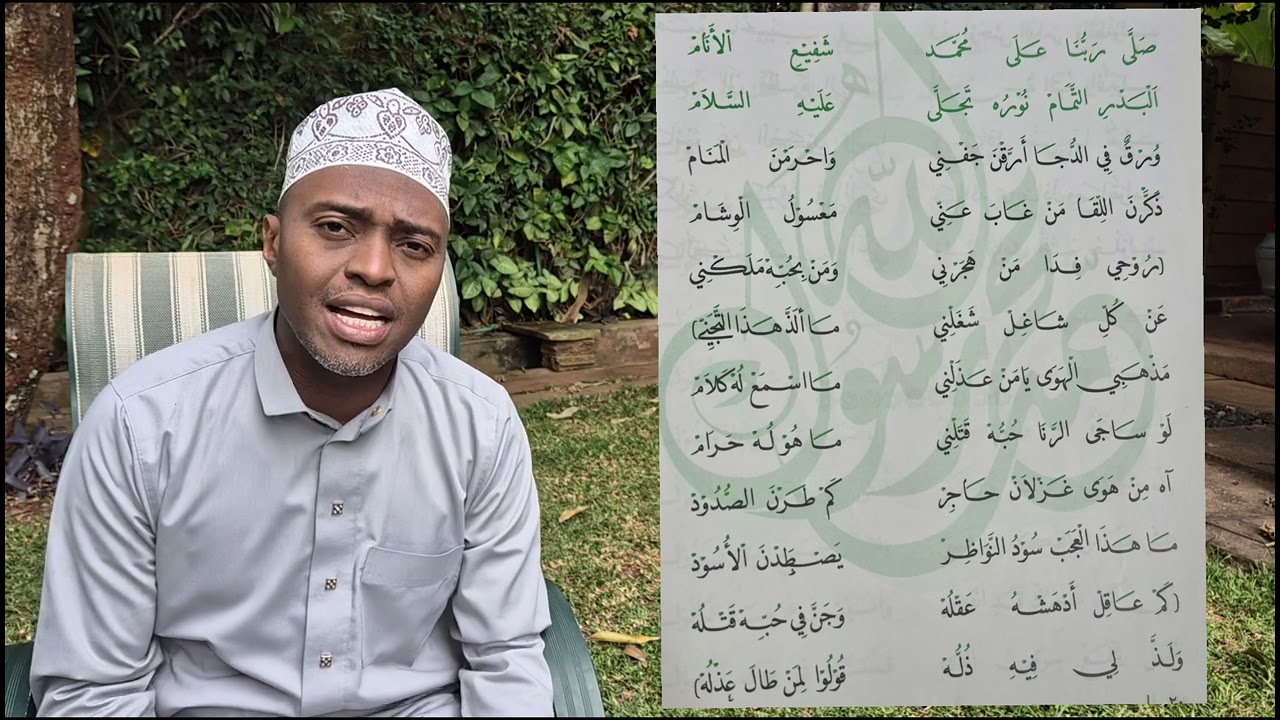 صَلَّى رَبُّنَا عَلَى مُحَمَّد شَفِيْعِ الْأَنَامْ
اَلْبَدْرِ التَّمَامْ نُوْرُه تَجَلَّى عَلَيْهِ السَّلَامْ
وُرْقٌ فِي الدُّجَا أَرَّقْنَ جَفْنِي وَاحْرَمْنَ الْمَنَامْ
ذَكَّرْنَ اللِّقَا مَنْ غَابَ عَنِّي مَعْسُوْلُ الْوِشَامْ
(رُوْحِي فِدَا مَنْ هَجَرْنِي وَمَنْ بِحُبِّهْ مَلَكْنِي
عَنْ كُلِّ شَاغِلْ شَغَلْنِي مَا أَلَذَّ هٰذَا التَّجَنِّي)
مَذْهَبِي الْهَوَى يَا مَنْ عَذَلْنِي مَا اسْمَعْ لَهْ كَلَامْ
لَوْ سَاجَى الرَّنَا حُبُّهْ قَتَلْنِي مَا هُوْ لُهْ حَرَامْ
آه مِنْ هَوَى غَزْلَانْ حَاجِرْ كَمْ طَرْنَ الصُّدُوْدْ
مَا هٰذَا الْعَجَبْ سُوْدُ النَّوَاظِرْ يَصْطِدْنَ الْأُسُوْدْ
(كَمْ عَاقِلْ أَدْهَشْهُ عَقْلُهْ وَجَنَّ فِي حُبِّهْ قَتْلُهْ
وَلَذَّ لِي فِيْهِ ذُلُّهْ قُوْلُوْا لِمَنْ طَالَ عَذْلُهْ)